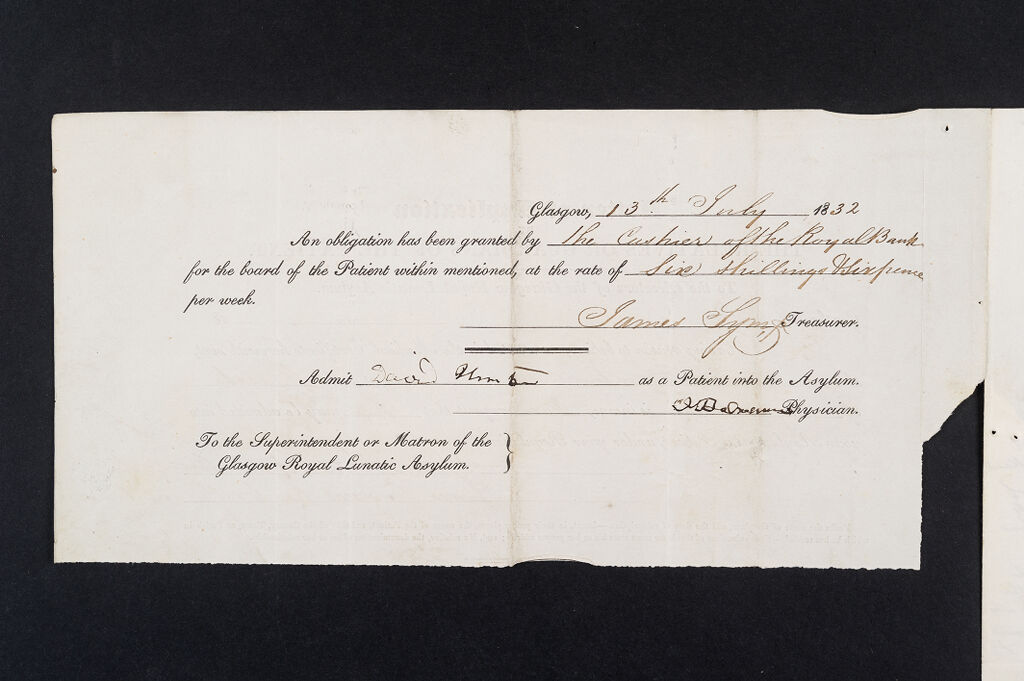 Glasgow, 13th July 1832
An obligation has been granted by the Cashier of the Royal Bank
for the board of the Patient within mentioned, at the rate of Six Shillings & Sixpence
per week.
James Treasurer.
Admit David as a Patient into the Asylum.
Physician.
To the Superintendent or Matron of the
Glasgow Royal Lunatic Asylum.